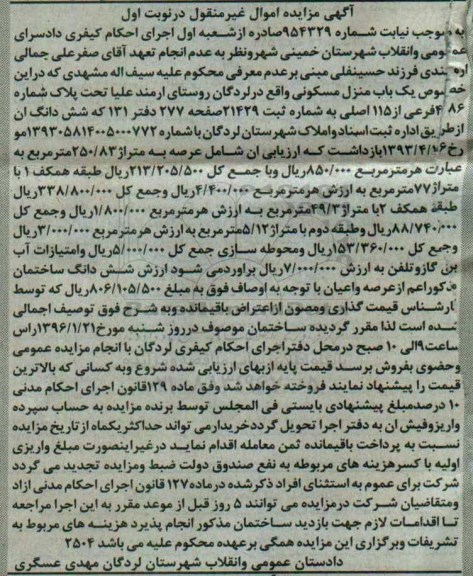 آگهی مزایده اموال غیرمنقول درنوبت اول
به موجب نیابت شماره ۹۵۴۳۲۹صادره ازشعبه اول اجرای احکام کیفری دادسرای
عمومی وانقلاب شهرستان خمینی شهرونظر به عدم انجام تعهد آقای صفرعلی جمالی
اره بندی فرزند حسینعلی مبنی برعدم معرفی محکوم علیه سیف اله مشهدی که دراین
خصوص یک باب منزل مسکونی واقع درلردگان روستای ارمند علیا تحت پلاک شماره
۴۰۸۶فرعی از۱۱۵ اصلی به شماره ثبت ۲۱۴۲۹صفحه ۲۷۷ دفتر ۱۳۱ که شش دانگ ان
ازطریق اداره ثبت اسنادواملاک شهرستان لردگان باشماره ۱۳۹۳۰۵۸۱۴۰۰۵۰۰۰۷۷۲مو
رخ۱۳۹۳/۴/۱۶بازداشت کـه ارزیابی ان شامل عرصه به متراژ۲۵۰/۸۳مترمربع به
عبارت هرمترمربـــع ۸۵۰/۰۰۰ریال وبا جمـع کل ۲۱۳/۲۰۵/۵۰۰ریال طبقه همکف ۱ با
متراژ۷۷مترمربع به ارزش هرمترمربـع ۴/۴۰۰/۰۰۰ریال وجمع کل ۳۳۸/۸۰۰/۰۰۰ریال
طبقه همکف ۲با متراژ۴۹/۳مترمربع بـه ارزش هرمترمربع ۱/۸۰۰/۰۰۰ریال وجمع کل
۸۸/۷۴۰/۰۰۰ریال وطبقه دوم با متراژ۵/۱۲مترمربع به ارزش هرمترمربع ۳/۰۰۰/۰۰۰ریال
وجمع کل ۱۵۳/۳۶۰/۰۰۰ریال ومحوطه سازی جمع کل ۵/۰۰۰/۰۰۰ریال وامتیازات آب
برق گازوتلفن به ارزش ۷/۰۰۰/۰۰۰ریال براوردمی شـود ارزش شـش دانگ ساختمان
مذکوراعم ازعرصه واعیان با توجه به اوصاف فوق به مبلغ ۸۰۶/۱۰۵/۵۰۰ریال که توسط
کارشناس قیمت گذاری ومصون ازاعتراض باقیمانده وبه شـرح فوق توصیف اجمالی
شده است لذا مقرر گردیده ساختمان موصوف درروز شنبه مورخ۱۳۹۶/۱/۲۱راس
ساعت۹الی ۱۰ صبح درمحل دفتراجرای احکام کیفری لردگان با انجام مزایده عمومی
وحضوری بفروش برسد قیمت پایه ازبهای ارزیابی شده شروع وبه کسانی که بالاترین
قیمت را پیشنهاد نمایند فروخته خواهد شد وفق ماده ۱۲۹قانون اجرای احکام مدنی
۱۰ درصدمبلغ پیشنهادی بایستی فی المجلس توسط برنده مزایده به حساب سپرده
واریزوفیش ان به دفتر اجرا تحویل گرددخریدارمی تواند حداکثریکماه ازتاریخ مزایده
نسبت به پرداخت باقیمانده ثمن معامله اقدام نماید درغیراینصورت مبلغ واریزی
اولیه با کسرهزینه های مربوطه به نفع صندوق دولت ضبط ومزایده تجدید می گردد
شرکت برای عموم به استثنای افراد ذکرشده درماده ۱۲۷ قانون اجرای احکام مدنی ازاد
ومتقاضیان شـرکت درمزایده می توانند ۵ روز قبل از موعد مقرر به این اجرا مراجعه
تـا اقدامـات لازم جهت بازدید ساختمان مذکور انجام پذیرد هزینـه های مربوط به
تشریفات وبرگزاری این مزایده همگی برعهده محکوم علیه می باشد ۲۵۰۴
دادستان عمومی وانقلاب شهرستان لردگان مهدی عسگری